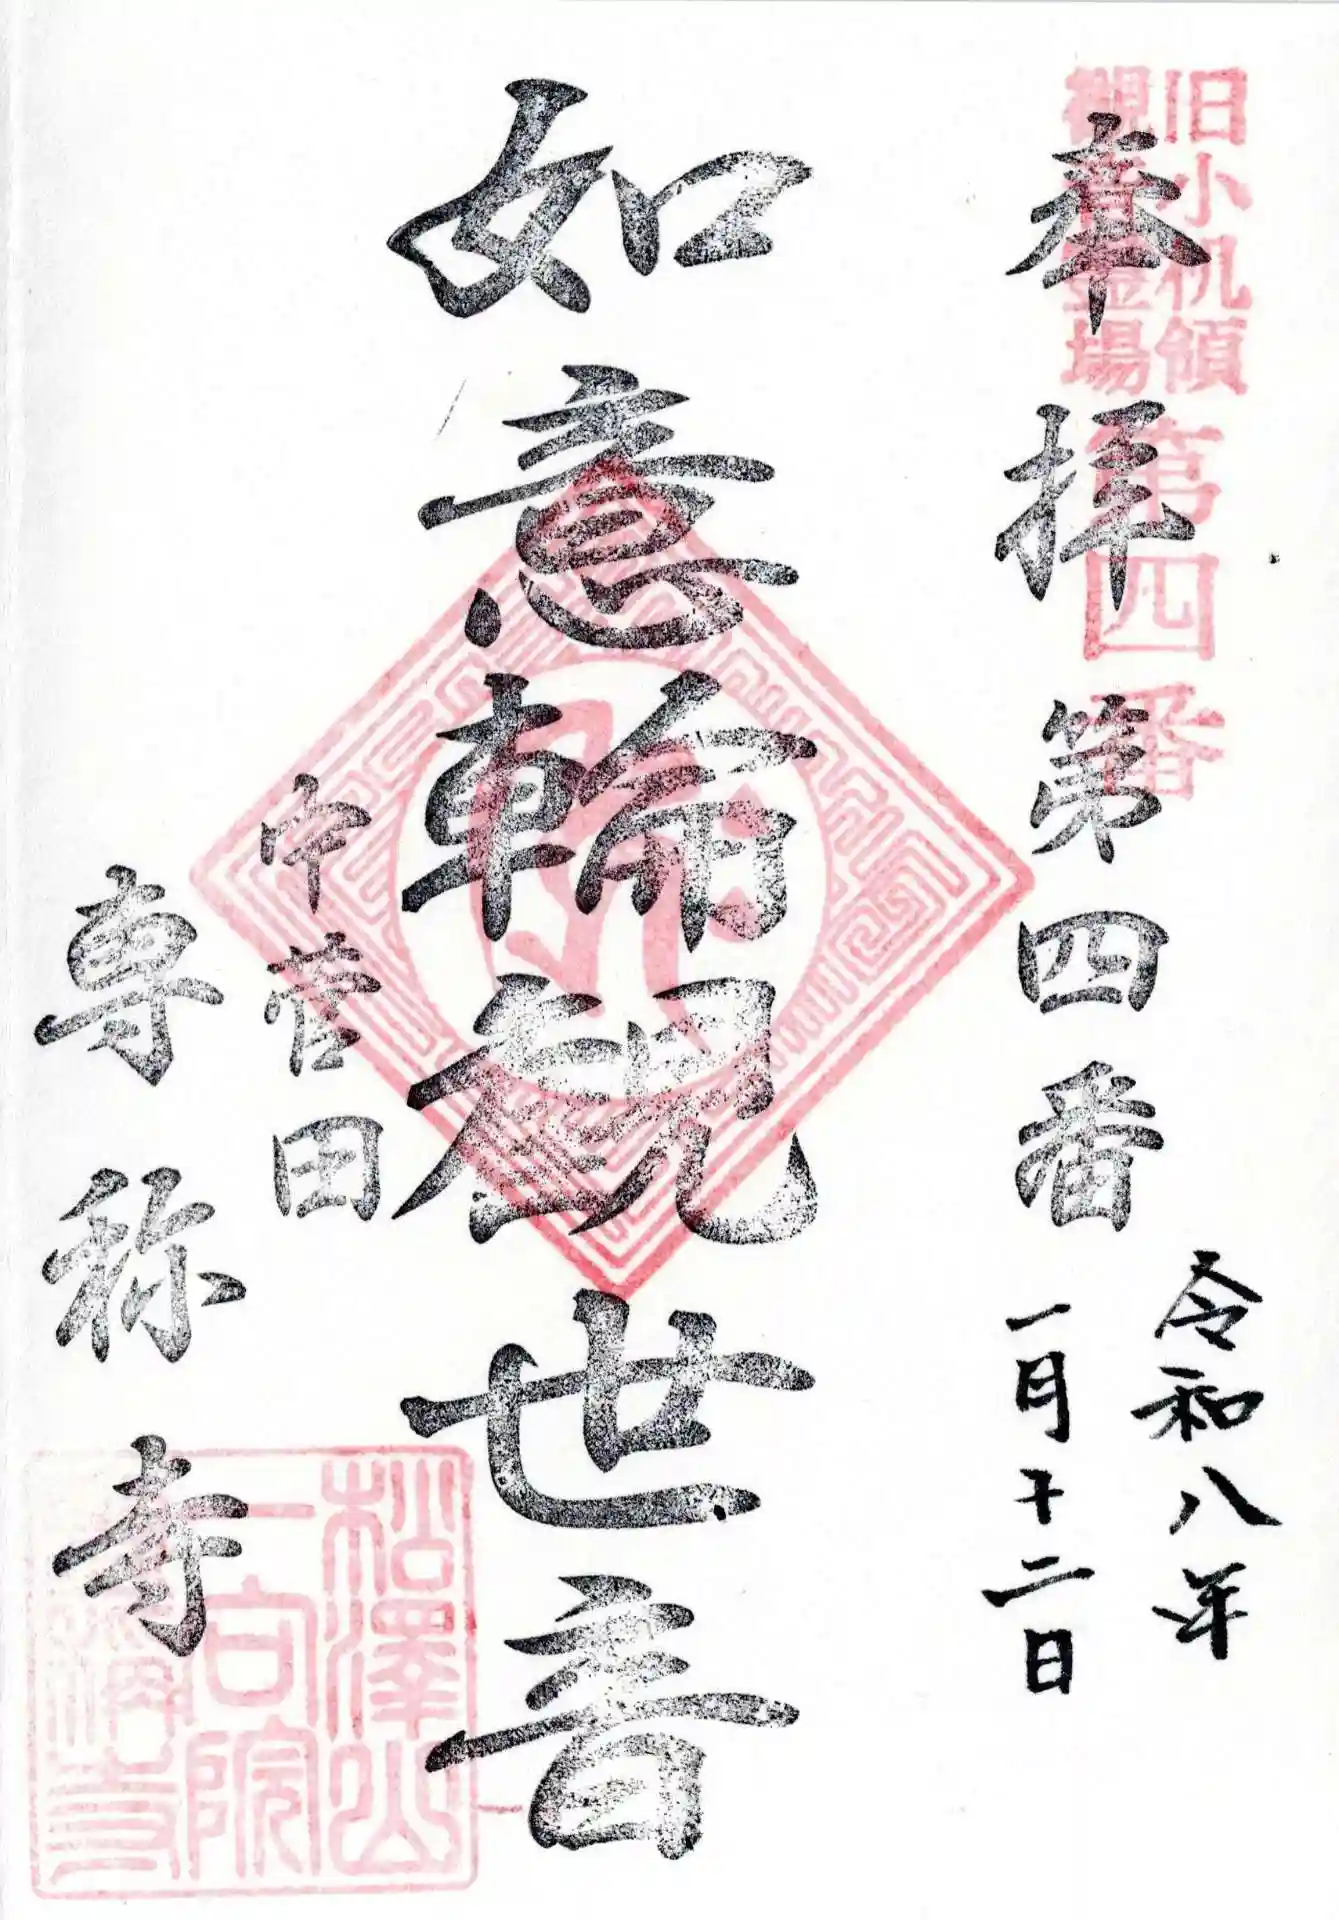 旧小机領
観音霊場
第四番
奉拝
第四番
令和八年
一月十二日
如意輪観世音
中菅田
専称寺
松澤山
一向院
寺